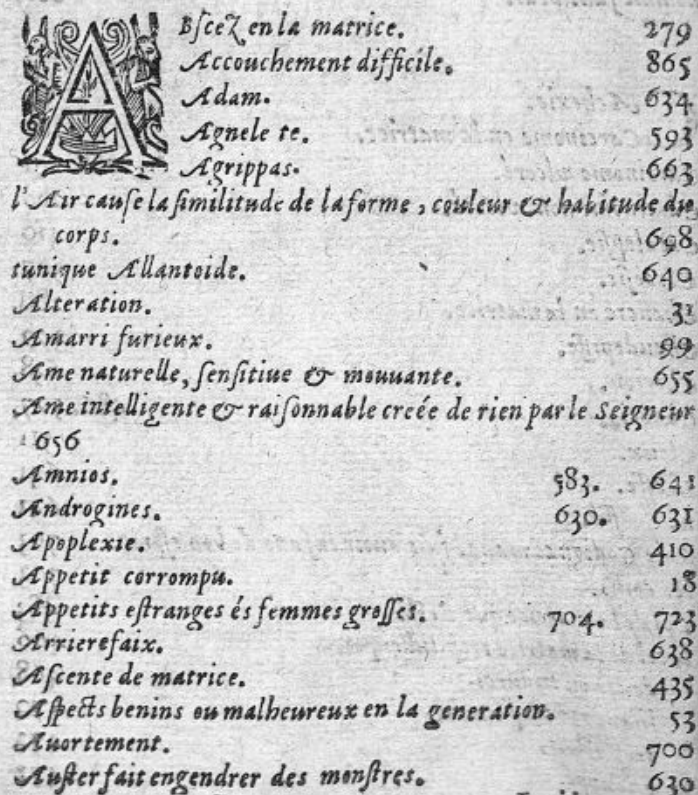 ABſcez en la matrice. 279
Accouchement difficile. 865
Adam. 634
Agnele te. 593
Agrippas. 663
l'Air cauſe la ſimilitude de la forme, couleur & habitude du
corps. 698
tunique Allantoide. 640
Alteration. 31
Amarri furieux. 99
Ame naturelle, ſenſitiue & mouuante. 655
Ame intelligente & raiſonnable creée de rien par le Seigneur
656
Amnios. 583. 641
Androgines. 630. 631
Apoplexie. 410
Appetit corrompu. 18
Appetits eſtranges és femmes groſſes. 704. 723
Arrierefaix. 638
Aſcente de matrice. 435
Aſpects benins ou malheureux en la generation. 53
Auortement. 700
Auſter fait engendrer des monſtres. 630